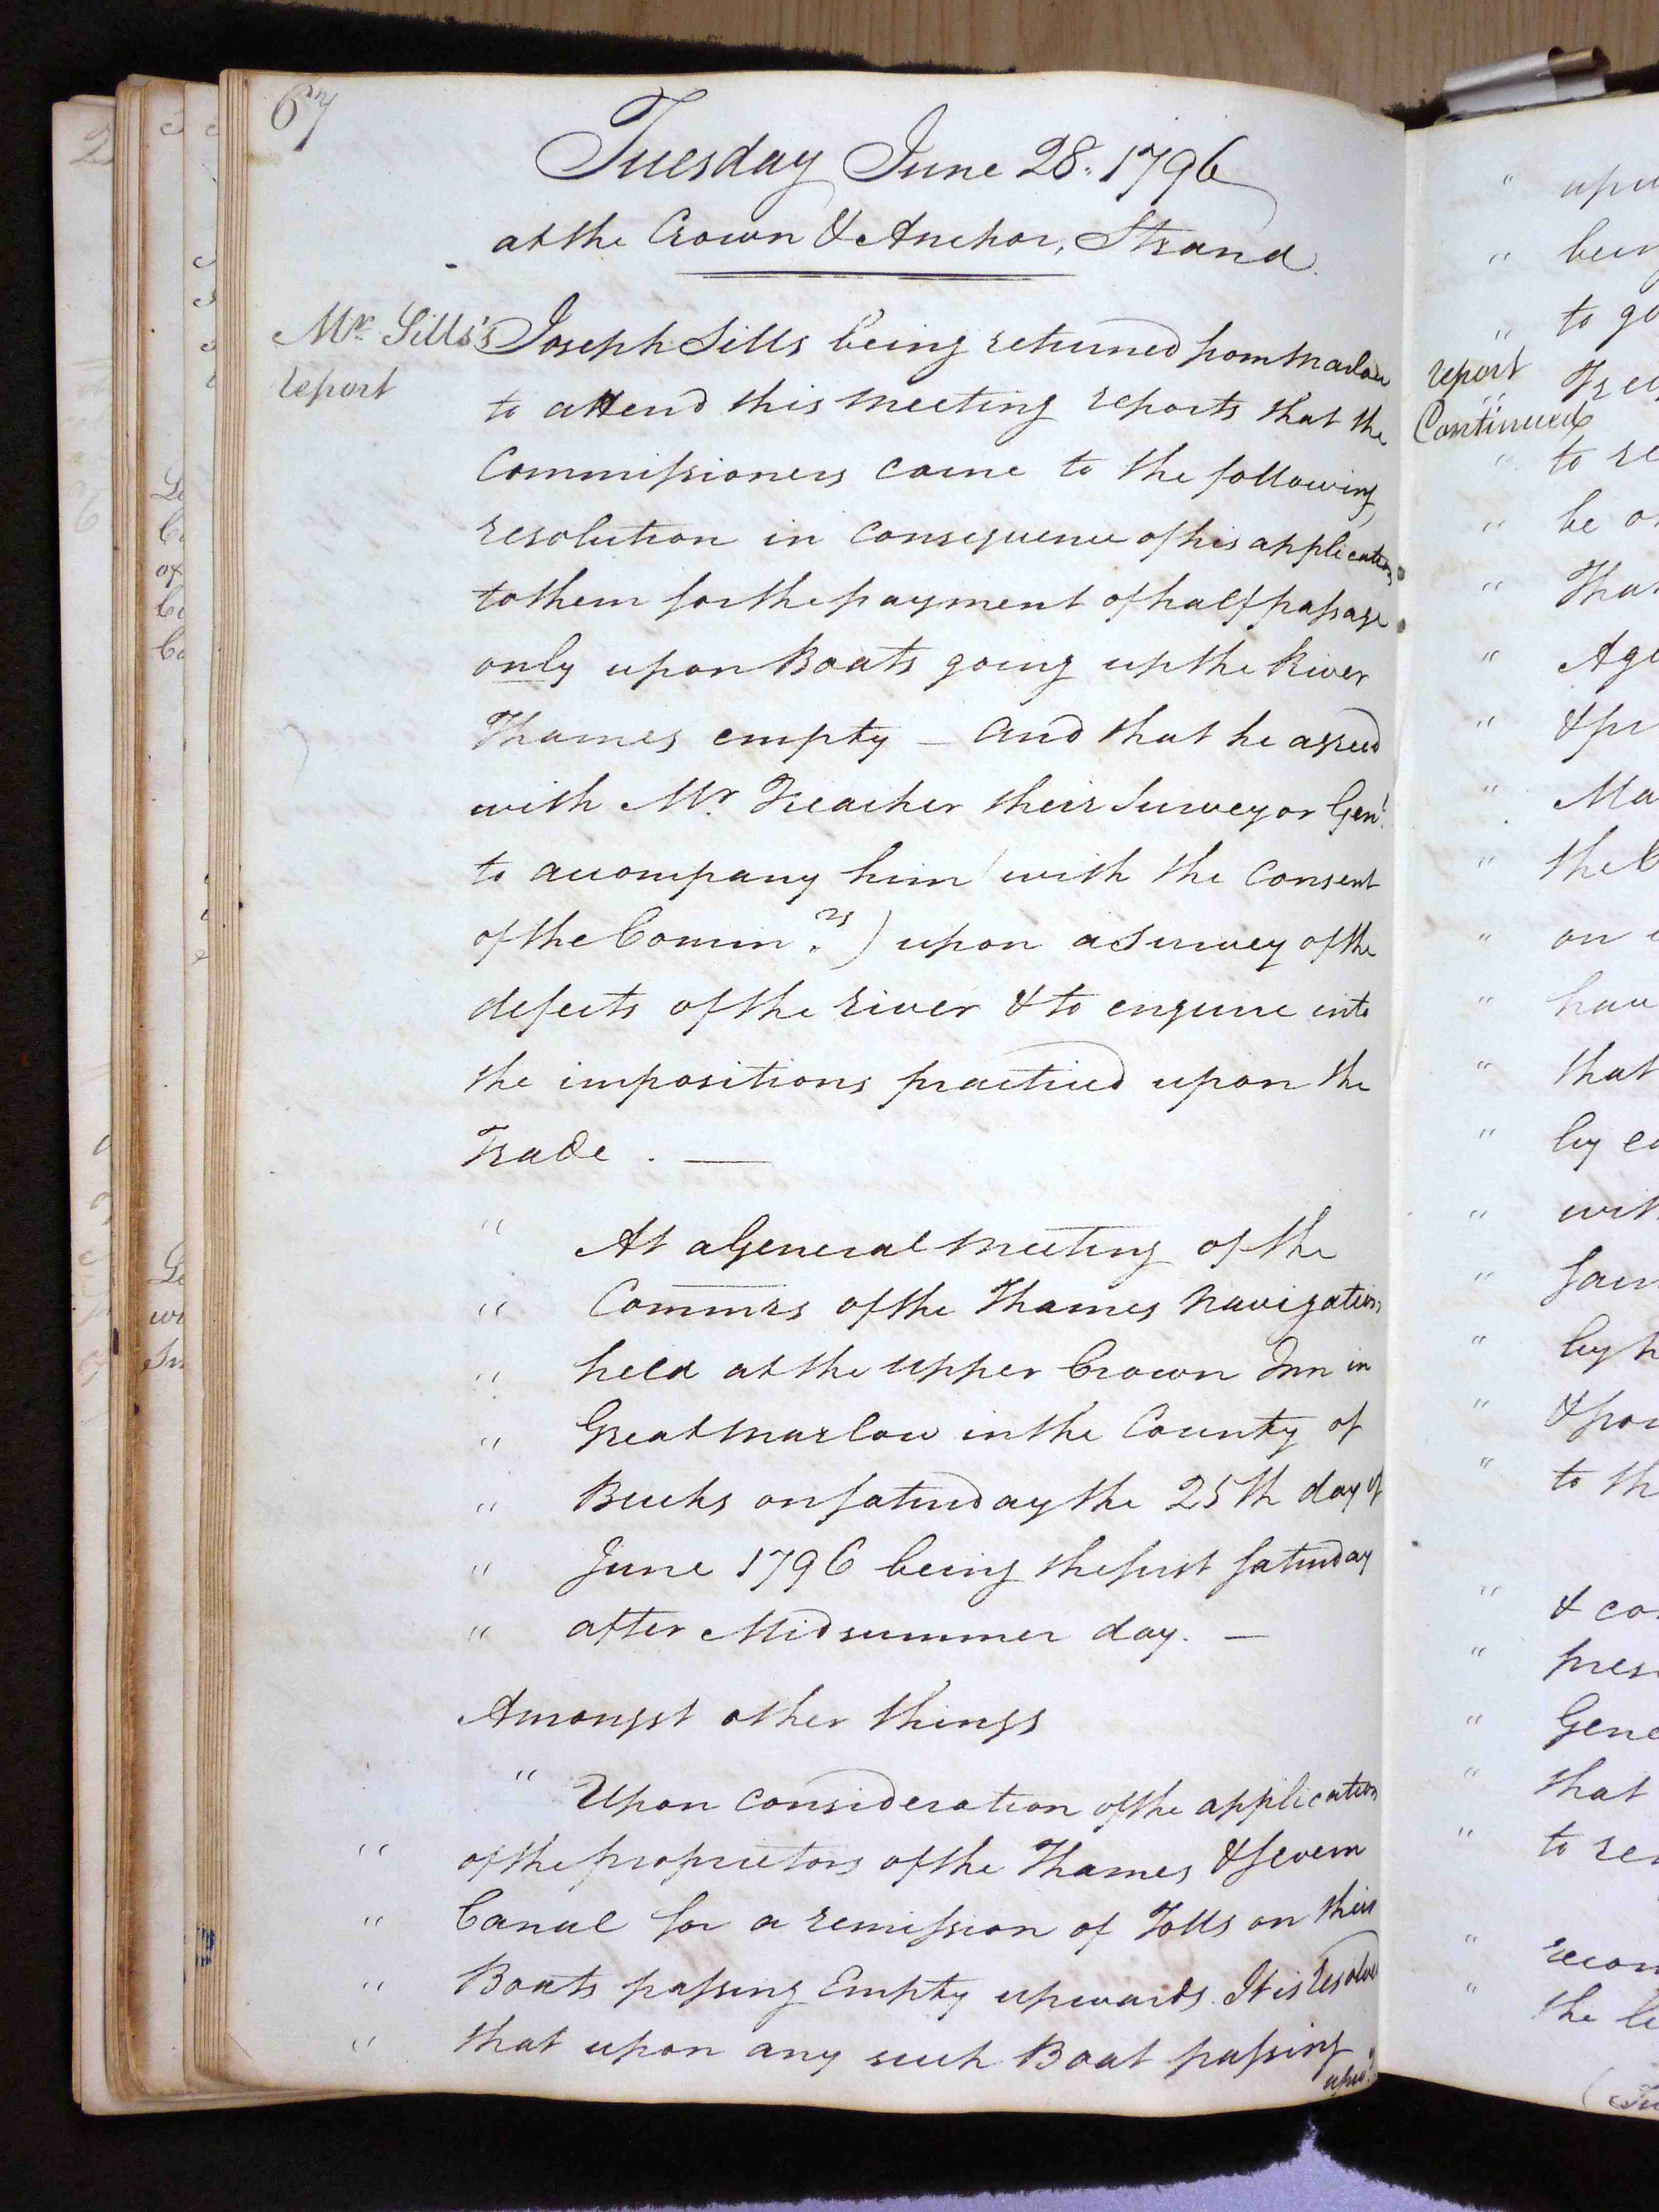 67
Tuesday June 28. 1796
at the Crown & Anchor, Strand.
Mr. Sills's
report
Joseph Sills being returned from Marlow
to attend this Meeting reports that the
Commissioners came to the following
resolution in consequence of his application
to them for the payment of half passage
only upon Boats going up the River
Thames empty — and that he agreed
with Mr. Treacher their Surveyor Genl.
to accompany him (with the Consent
of the Commrs.) upon a Survey of the
defects of the river & to enquire into
the impositions practiced upon the
Trade. —
" At a General Meeting of the
" Commrs of the Thames Navigation
" held at the upper Crown Inn in
" Great Marlow in the County of
" Bucks on Saturday the 25th day of
" June 1796 being the first Saturday
" after Midsummer day. —
Amongst other things
" Upon consideration of the application
" of the proprietors of the Thames & Severn
" Canal for a remission of Tolls on their
" Boats passing Empty upwards. It is Resolved
" that upon any such Boat passing
upwds.
report
Continued
" to
" to
" be
" That
" the
" on
" that
" by
" to
" &
" that
" to
" the